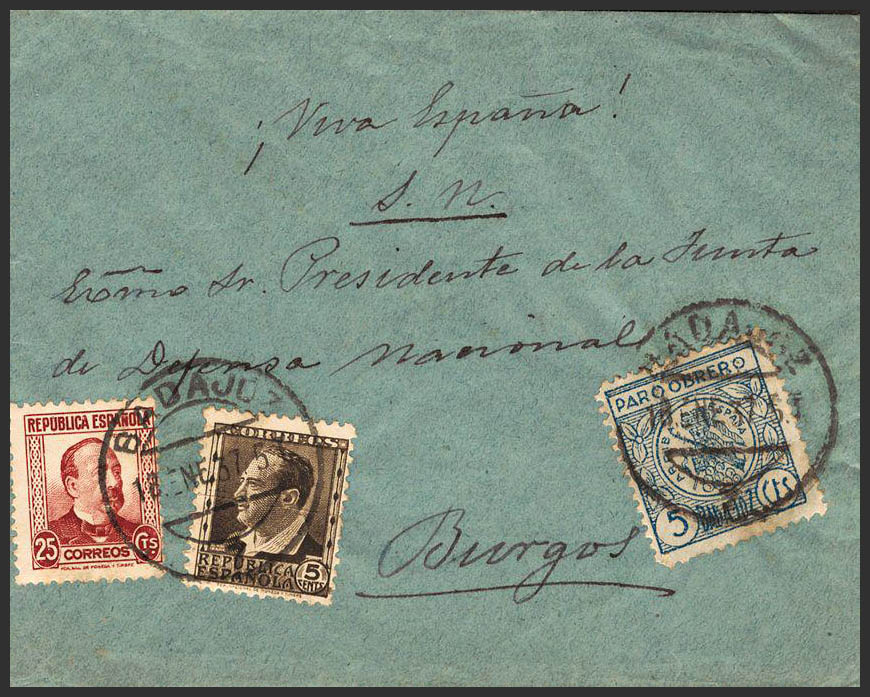 ¡Viva España!
S. N.
Exmo Sr. Presidente de la Junta
de Defensa Nacional
Burgos
BADAJOZ
18.ENE.37.
REPUBLICA ESPAÑOLA
25 CTS
CORREOS
CORREOS
REPUBLICA
ESPAÑOLA
5
CENTS
BADAJOZ
PARO OBRERO
5 BADAJOZ Cts